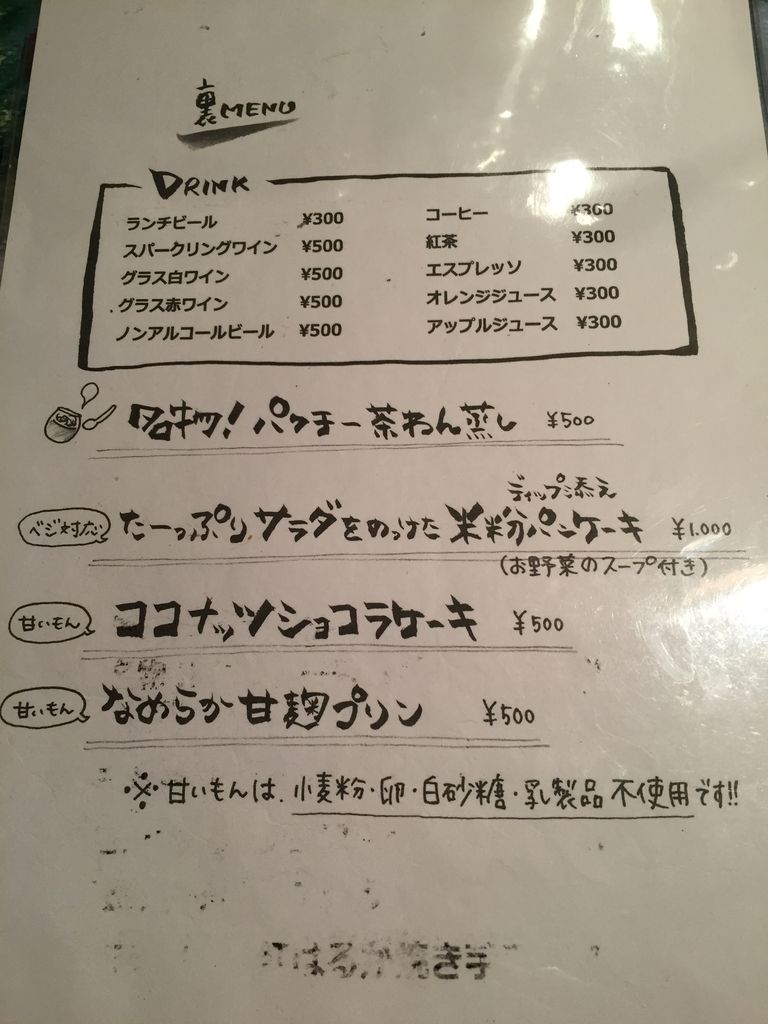 裏MENU
DRINK
ランチビール ¥300
スパークリングワイン ¥500
グラス白ワイン ¥500
グラス赤ワイン ¥500
ノンアルコールビール ¥500
コーヒー ¥300
紅茶 ¥300
エスプレッソ ¥300
オレンジジュース ¥300
アップルジュース ¥300
名物!パクチー茶わん蒸し ¥500
ディップ添え
ベジ対応 たーっぷりサラダをのっけた米粉パンケーキ ¥1.000
(お野菜のスープ付き)
甘いもん ココナッツショコラケーキ ¥500
甘いもん なめらか甘麹プリン ¥500
※甘いもんは、小麦粉・卵・白砂糖・乳製品不使用です!!
はるか焼き芋